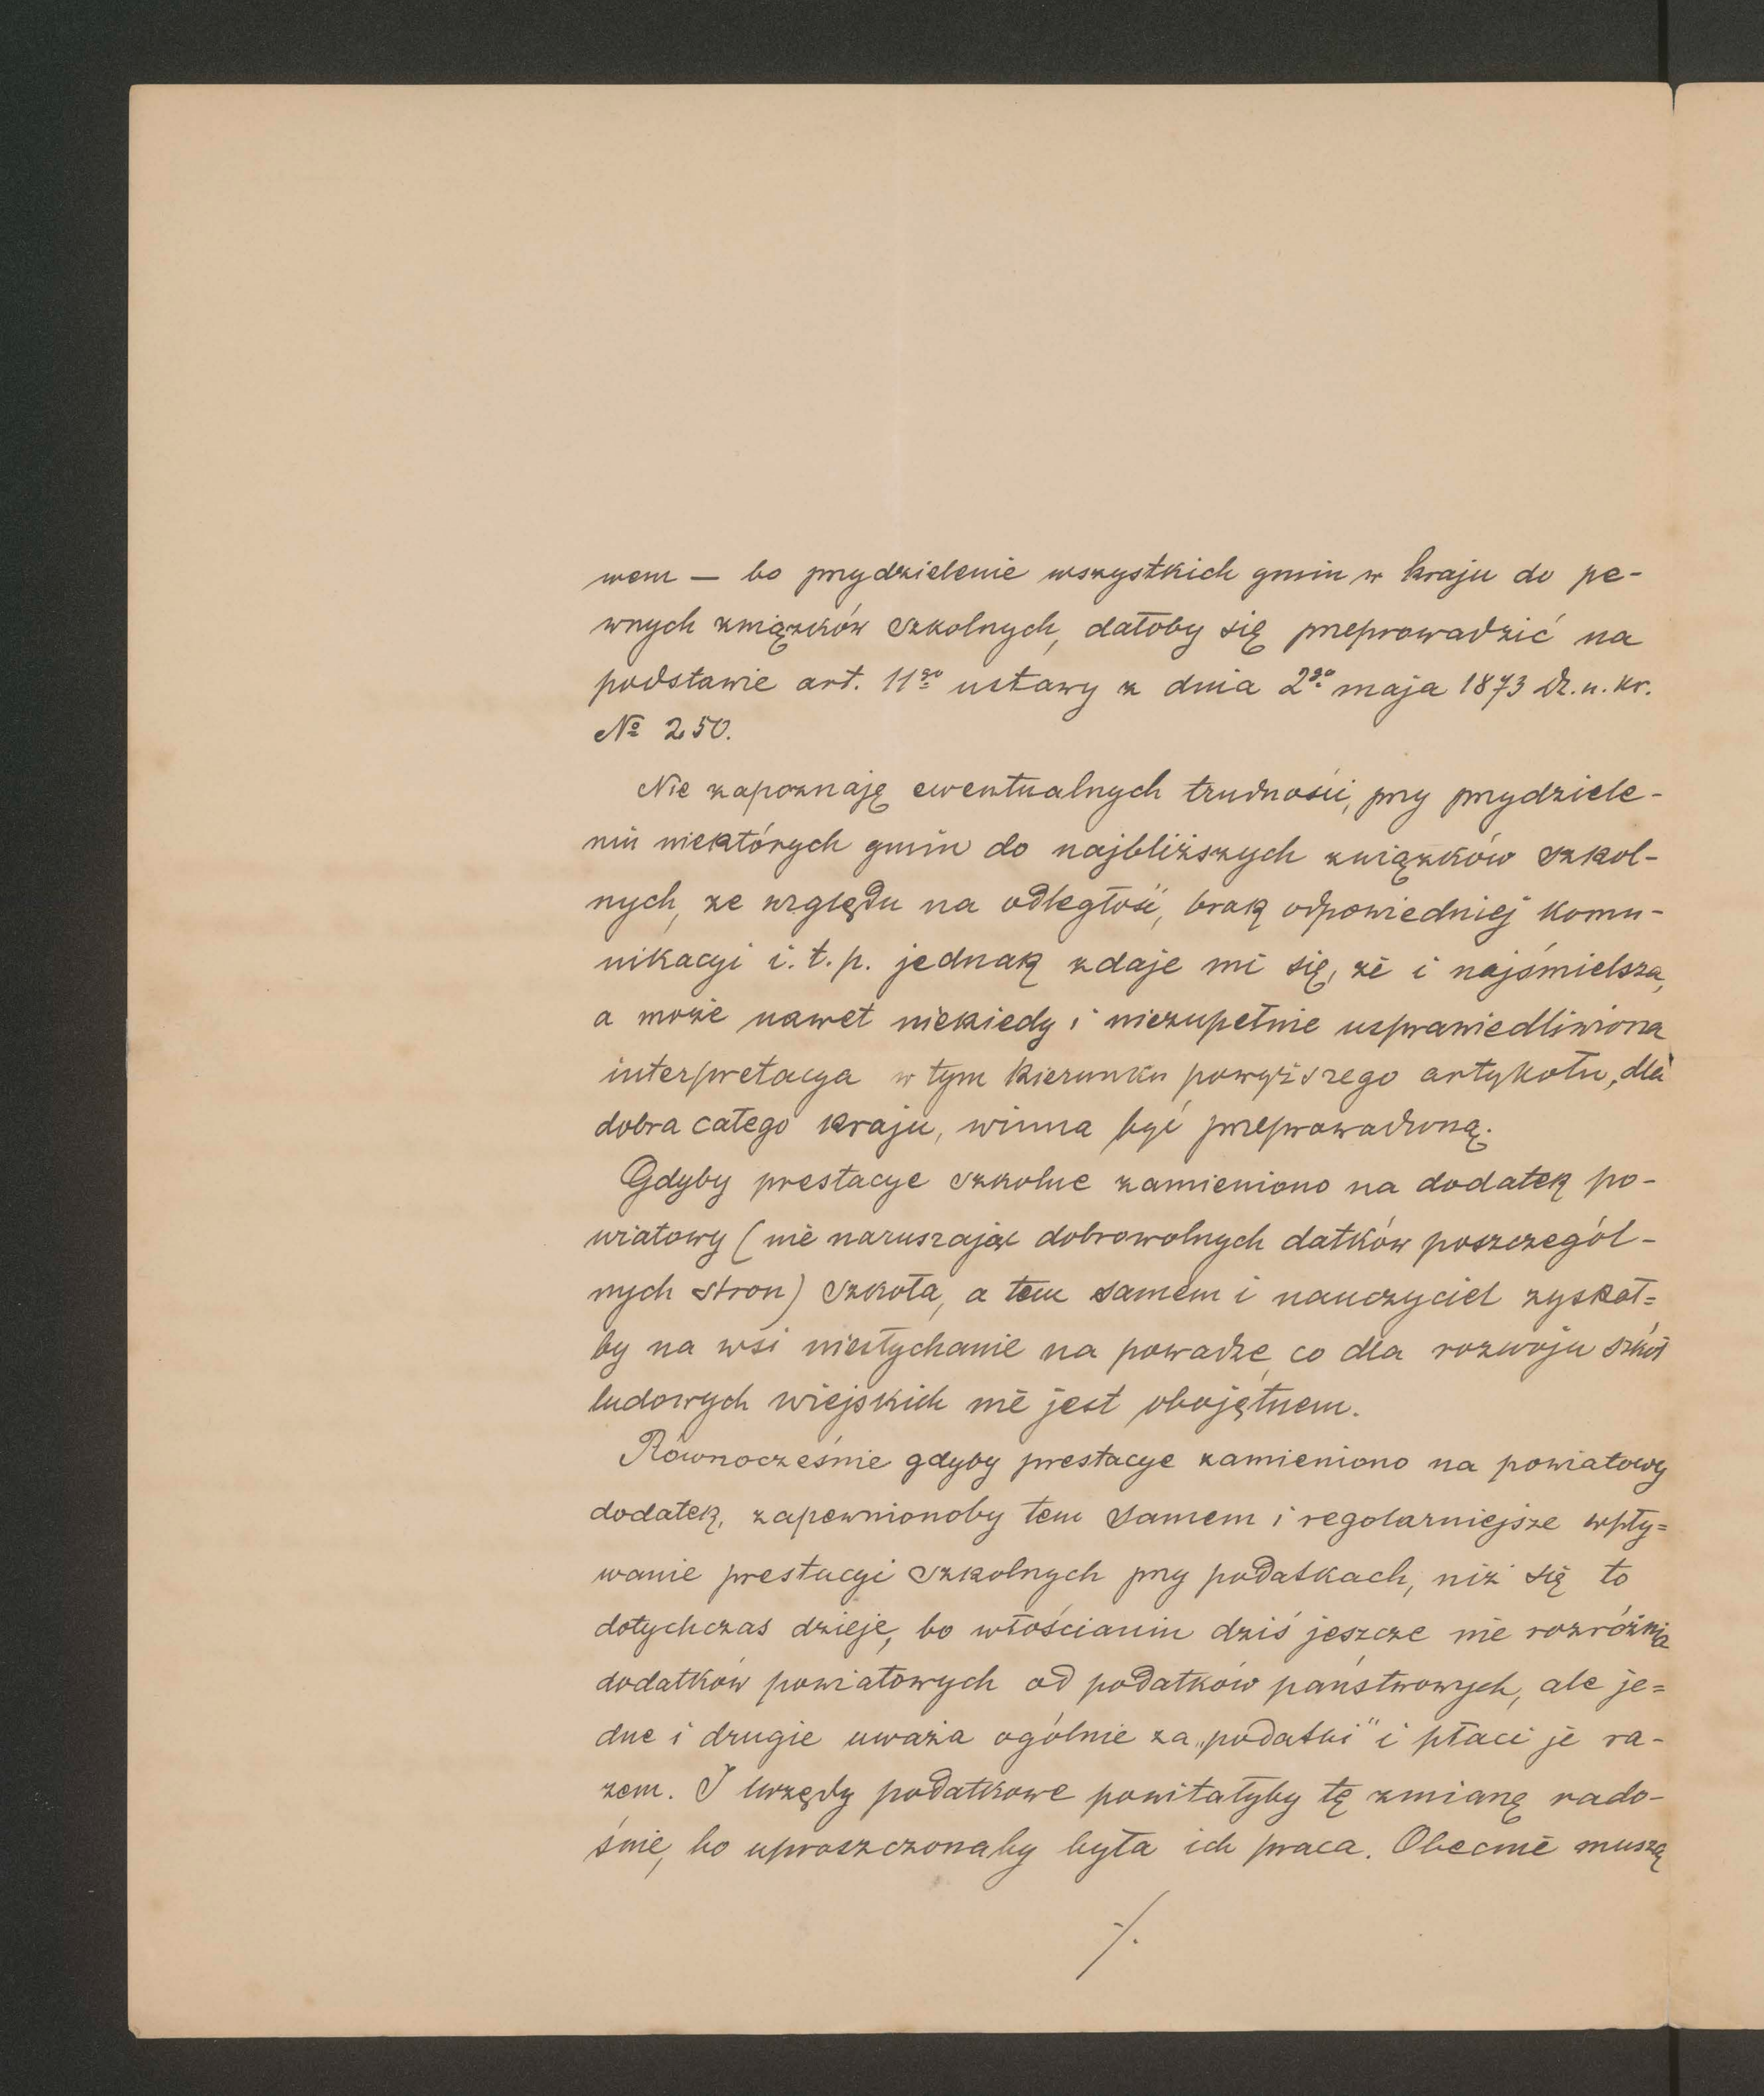 wem — bo przydzielenie wszystkich gmin w kraju do pe-
wnych związków szkolnych, dałoby się przeprowadzić na
podstawie art. 11go ustawy z dnia 2go maja 1873 Dz. u. kr.
№ 250.
Nie zapoznaję ewentualnych trudności, przy przydziele-
niu niektórych gmin do najbliższych związków szkol-
nych, ze względu na odległość, brak odpowiedniej komu-
nikacyi i. t. p. jednak zdaje mi się, że i najśmielsza,
a może nawet niekiedy i niezupełnie usprawiedliwiona
interpretacya w tym kierunku powyższego artykołu, dla
dobra całego kraju, winna być przeprowadzoną.
Gdyby prestacye szkolne zamieniono na dodatek po-
wiatowy (nie naruszając dobrowolnych datków poszczegól-
nych stron) szkoła, a tem samem i nauczyciel zyskał=
by na wsi niesłychanie na powadze, co dla rozwoju szkół
ludowych wiejskich nie jest obojętnem.
Równocześnie gdyby prestacye zamieniono na powiatowy
dodatek, zapewnionoby tem samem i regolarniejsze wpły=
wanie prestacyi szkolnych przy podatkach, niż się to
dotychczas dzieje, bo włościanin dziś jeszcze nie rozróżnia
dodatków powiatowych od podatków państwowych, ale je=
dne i drugie uważa ogólnie za „podatki" i płaci je ra-
zem. I urzędy podatkowe powitałyby tę zmianę rado-
śnie, bo uproszczonaby była ich praca. Obecnie muszą
./.